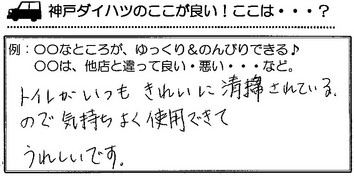 神戸ダイハツのここが良い！ここは・・・？
例：〇〇なところが、ゆっくり＆のんびりできる♪
〇〇は、他店と違って良い・悪い・・・など。
トイレがいつもきれいに清掃されている
ので気持ちよく使用できて
うれしいです。